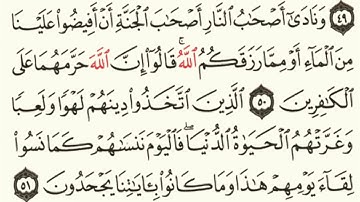 ٤٩ وَنَادَىٰٓ أَصْحَٰبُ ٱلنَّارِ أَصْحَٰبَ ٱلْجَنَّةِ أَنْ أَفِيضُوا۟ عَلَيْنَا
مِنَ ٱلْمَآءِ أَوْ مِمَّا رَزَقَكُمُ ٱللَّهُ ۚ قَالُوٓا۟ إِنَّ ٱللَّهَ حَرَّمَهُمَا عَلَى
ٱلْكَٰفِرِينَ ٥٠ ٱلَّذِينَ ٱتَّخَذُوا۟ دِينَهُمْ لَهْوًا وَلَعِبًا
وَغَرَّتْهُمُ ٱلْحَيَوٰةُ ٱلدُّنْيَا ۚ فَٱلْيَوْمَ نَنسَىٰهُمْ كَمَا نَسُوا۟
لِقَآءَ يَوْمِهِمْ هَٰذَا وَمَا كَانُوا۟ بِـَٔايَٰتِنَا يَجْحَدُونَ ٥١